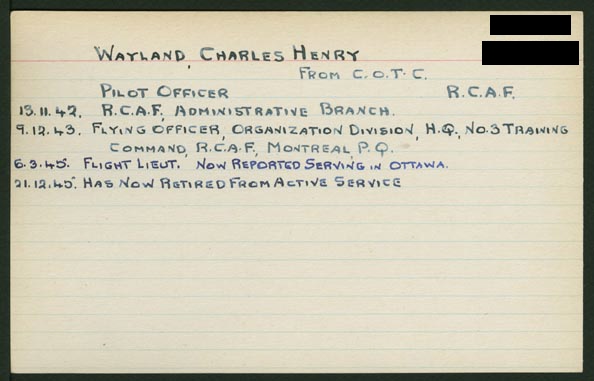 WAYLAND, CHARLES HENRY
FROM C.O.T.C.
PILOT OFFICER R.C.A.F.
13.11.42. R.C.A.F. ADMINISTRATIVE BRANCH.
9.12.43. FLYING OFFICER, ORGANIZATION DIVISION, H.Q., NO.3 TRAINING
COMMAND, R.C.A.F., MONTREAL, P.Q.
6.3.45. FLIGHT LIEUT. NOW REPORTED SERVING IN OTTAWA.
21.12.45. HAS NOW RETIRED FROM ACTIVE SERVICE